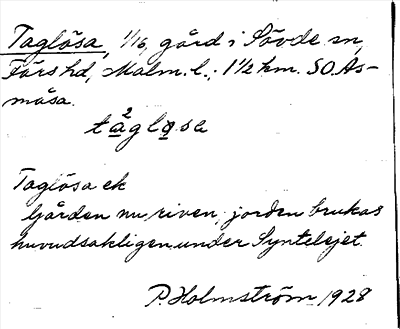 Taglösa, 1/16, gård i Sövde sn,
Färs hd, Malm. l.; 1 1/2 km. SO As-
måsa.
ta²glọsa
Taglösa ek
Gården nu riven, jorden brukas
huvudsakligen under Syntelejet.
P. Holmström 1928